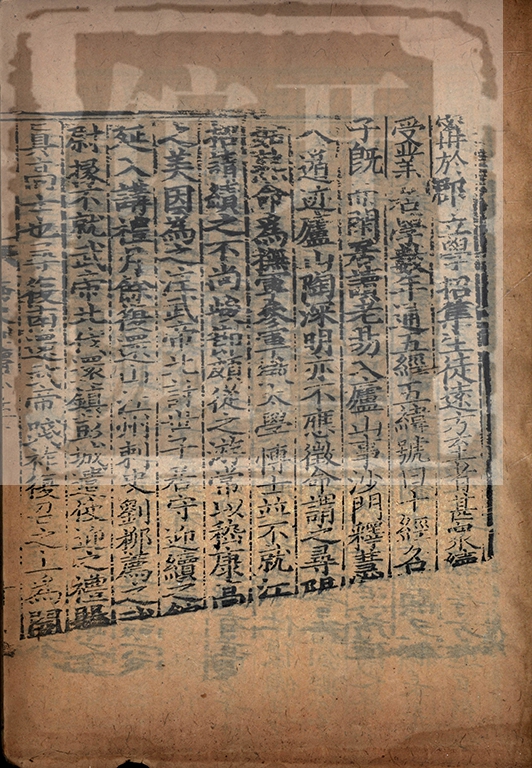 甯於郡立學招集生徒遠方至者甚衆續
受業居學數年通五經五緯號曰十經名
子既而閑居讀老易入廬山事沙門釋慧
八遁迹廬山陶淵明亦不應徵命謂之尋陽
命為撫軍參軍徵太學博士並不就江
招請續之不尚峻節頗從之遊常以嵇康高
之美因為之注武帝北討世子居守迎續之館
延入講禮月餘復還山江州刺史劉柳薦之武
尉掾不就武帝北伐還鎮彭城遣使迎之禮賜
真高士也尋復南還武帝踐祚復召之上為開